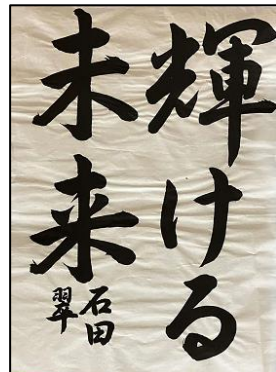 輝ける
未来
石田
翠